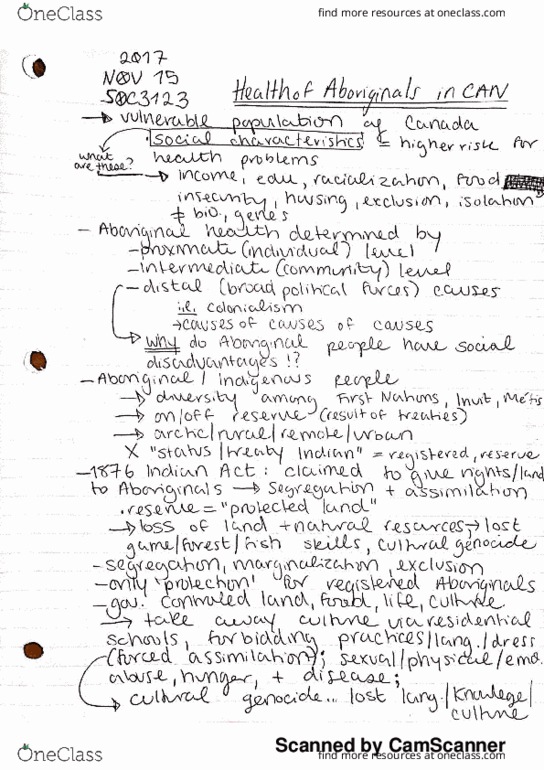 OneClass
find more resources at oneclass.com
2017
NOV 15
SOC3123
Health of Aboriginals in CAN
→ vulnerable population of Canada
· social characteristics = higher risk for
what are these?
health problems
→ income, edu, racialization, food
insecurity, housing, exclusion, isolation
≠ bio, genes
- Aboriginal health determined by
- proximate (individual) level
- intermediate (community) level
- distal (broad political forces) causes
i.e. colonialism
→ causes of causes of causes
→ WHY do Aboriginal people have social
disadvantages !?
- Aboriginal / Indigenous people
→ diversity among First Nations, Inuit, Métis
→ on/off reserve (result of treaties)
→ arctic/rural/remote/urban
X "status/treaty Indian" = registered, reserve
- 1876 Indian Act: claimed to give rights/land
to Aboriginals → segregation + assimilation
· reserve = "protected land"
→ loss of land + natural resources → lost
game/forest/fish skills, cultural genocide
- segregation, marginalization, exclusion
- only 'protection' for registered Aboriginals
- gov. controled land, food, life, culture
→ take away culture via residential
schools, forbidding practices/lang./dress
(forced assimilation); sexual/physical/emo.
abuse, hunger, + disease;
→ cultural genocide... lost lang./knowlege/
culture
Scanned by CamScanner
OneClass
find more resources at oneclass.com